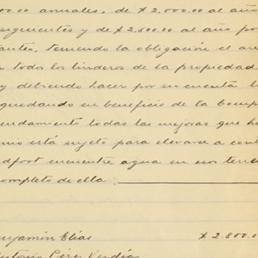 00.00 anuales, de $2,000.00 al año
segmentos y de $2,500.00 al año por
antes, teniendo la obligación el arr
n todos los linderos de la propiedad
y debiendo hacer por su cuenta l
quedando en beneficio de la Comp
rendamiento todas las mejoras que h
mio está sujeto para elevarse a
dfoot encuentre agua en esos terre
completo de ella.
njamin Elias $2,800.0